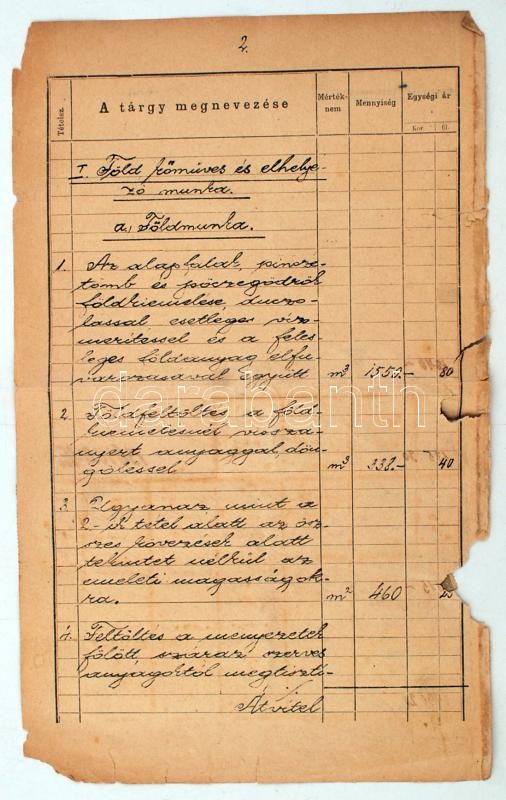 2.
Tételsz.
A tárgy megnevezése
Mérték-
nem
Mennyiség
Egységi ár
Kor.
fil.
I. Föld kőmüves és elhelye-
ző munka.
a, Földmunka.
1. Az alapfalak, pincze-
tömb és pöczegödrök
földkiemelése, duczo-
lással, esetleges víz-
merítéssel és a feles-
leges földanyag elfu-
varozásával együtt m³ 1550.- 80
2. Földfeltöltés, a föld-
kiemelésnél vissza-
nyert anyaggal, dön-
göléssel m³ 332.- 40
3. Ugyanaz mint a
2-ik tétel alatt az ösz-
szes kövezések alatt
tekintet nélkül az
emeleti magasságok-
ra. m² 460
4. Feltöltés a menyezetek
fölött száraz szerves
anyagoktól megtisztí-
Átvitel
darabanth